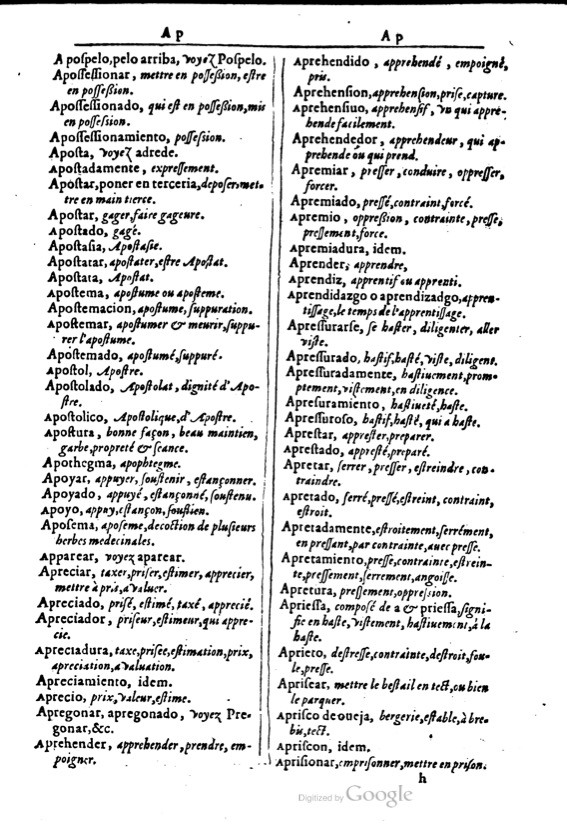 Ap
A pospelo,pelo arriba, voyez Pospelo.
Apoſſeſſionar, mettre en poſſeſsion, eſtre
en poſſeſsion.
Apoſſeſſionado, qui eſt en poſſeſsion, mis
en poſſeſsion.
Apoſſeſſionamiento, poſſeſsion.
Apoſta, voyez adrede.
Apoſtadamente, expreſſement.
Apoſtar, poner en terceria, depoſer, met-
tre en main tierce.
Apoſtar, gager, faire gageure.
Apoſtado, gagé.
Apoſtaſia, Apoſtaſie.
Apoſtatar, apoſtater, eſtre Apoſtat.
Apoſtata, Apoſtat.
Apoſtema, apoſtume ou apoſteme.
Apoſtemacion, apoſtume, ſuppuration.
Apoſtemar, apoſtumer & meurir, ſuppu-
rer l'apoſtume.
Apoſtemado, apoſtumé, ſuppuré.
Apoſtol, Apoſtre.
Apoſtolado, Apoſtolat, dignité d'Apo-
ſtre.
Apoſtolico, Apoſtolique, d'Apoſtre.
Apoſtura, bonne façon, beau maintien,
garbe, propreté & ſeance.
Apothegma, apophtegme.
Apoyar, appuyer, ſouſtenir, eſtançonner.
Apoyado, appuyé, eſtançonné, ſouſtenu.
Apoyo, appuy, eſtançon, ſouſtien.
Apoſema, apoſeme, decoction de pluſieurs
herbes medecinales.
Apparear, voyez aparear.
Apreciar, taxer, priſer, eſtimer, apprecier,
mettre à pris, avaluer.
Apreciado, priſé, eſtimé, taxé, apprecié.
Apreciador, priſeur, eſtimeur, qui appre-
cie.
Apreciadura, taxe, priſee, eſtimation, prix,
apreciation, avaluation.
Apreciamiento, idem.
Aprecio, prix, valeur, eſtime.
Apregonar, apregonado, voyez Pre-
gonar, &c.
Aprehender, apprehender, prendre, em-
poigner.
Ap
Aprehendido, apprehendé, empoigné,
pris.
Aprehenſion, apprehenſion, priſe, capture.
Aprehenſiuo, apprehenſif, vn qui appre-
hende facilement.
Aprehendedor, apprehendeur, qui ap-
prehende ou qui prend.
Apremiar, preſſer, conduire, oppreſſer,
forcer.
Apremiado, preſſé, contraint, forcé.
Apremio, oppreſsion, contrainte, preſſe,
preſſement, force.
Apremiadura, idem.
Aprender, apprendre,
Aprendiz, apprentif ou apprenti.
Aprendidazgo o aprendizadgo, appren-
tiſſage, le temps de l'apprentiſſage.
Apreſſurarſe, ſe haſter, diligenter, aller
viſte.
Apreſſurado, haſtif, haſté, viſte, diligent.
Apreſſuradamente, haſtiuement, prom-
ptement, viſtement, en diligence.
Apreſuramiento, haſtiueté, haſte.
Apreſſuroſo, haſtif, haſté, qui a haſte.
Apreſtar, appreſter, preparer.
Apreſtado, appreſté, preparé.
Apretar, ſerrer, preſſer, eſtreindre, con-
traindre.
Apretado, ſerré, preſſé, eſtreint, contraint,
eſtroit.
Apretadamente, eſtroitement, ſerrément,
en preſſant, par contrainte, auec preſſe.
Apretamiento, preſſe, contrainte, eſtrein-
te, preſſement, ſerrement, angoiſſe.
Apretura, preſſement, oppreſsion.
Aprieſſa, compoſé de a & prieſſa, ſigni-
fie en haſte, viſtement, haſtiuement, à la
haſte.
Aprieto, deſtreſſe, contrainte, deſtroit, fou-
le, preſſe.
Apriſcar, mettre le beſtail en tect, ou bien
le parquer.
Apriſco de oueja, bergerie, eſtable, à bre-
bis, tect.
Apriſcon, idem.
Apriſionar, empriſonner, mettre en priſon.
h
Digitized by Google